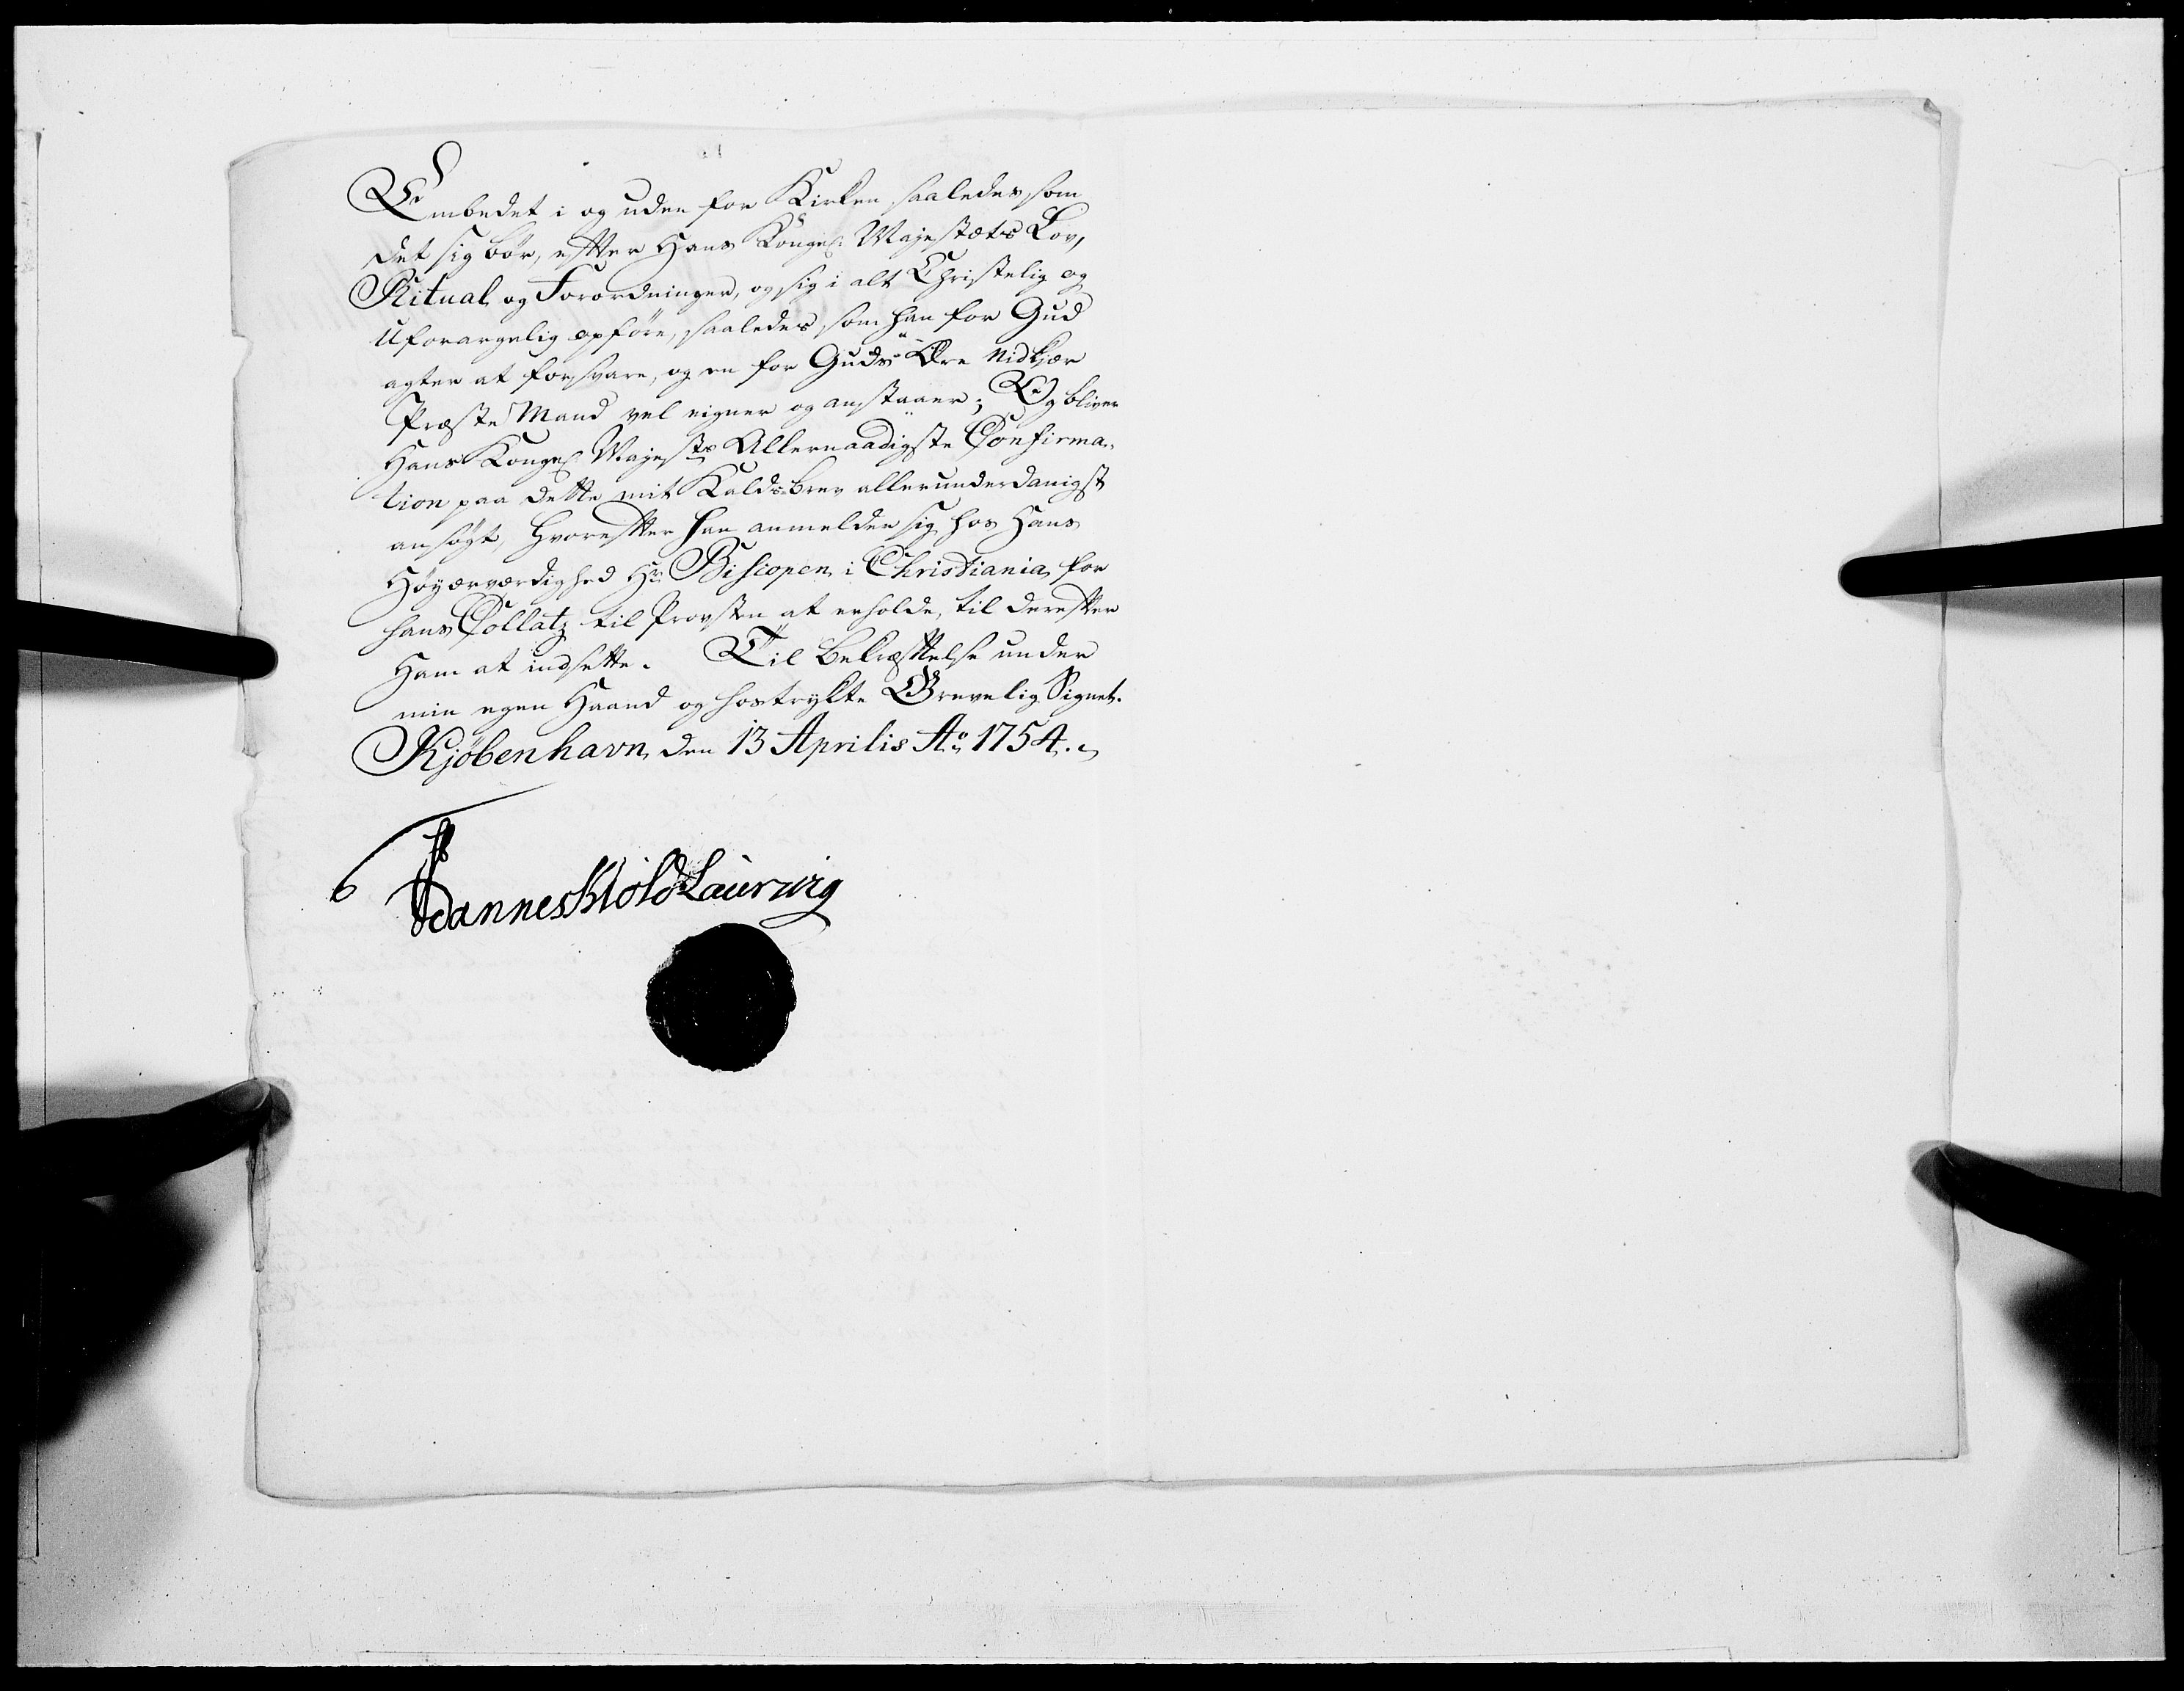 Embedet i og uden for Kirken saaledes som
det sig bör, efter Hans Kongel: Majestæts Lov,
Ritual og Forordninger, og sig i alt Christelig og
Uforargelig opföre, saaledes som han for Gud
agter at forsvare, og en for Guds Ære Nidkjær
Præste Mand vel eigner og anstaaer; Og bliver
Hans Kongel: Majests Allernaadigste Confirma-
tion paa dette mit Kaldsbrev allerunderdanigst
ansögt, hvorefter han anmelder sig hos Hans
Höyærværdighed Hr: Biscopen i Christiania for
hans Collatz til Provsten at erholde, til derefter
Ham at indsette. Til Bekræftelse under
min egen Haand og hostrykte Grevelig Signet.
Kjöbenhavn den 13 Aprilis Ao 1754.
Danneskiold Laurwig